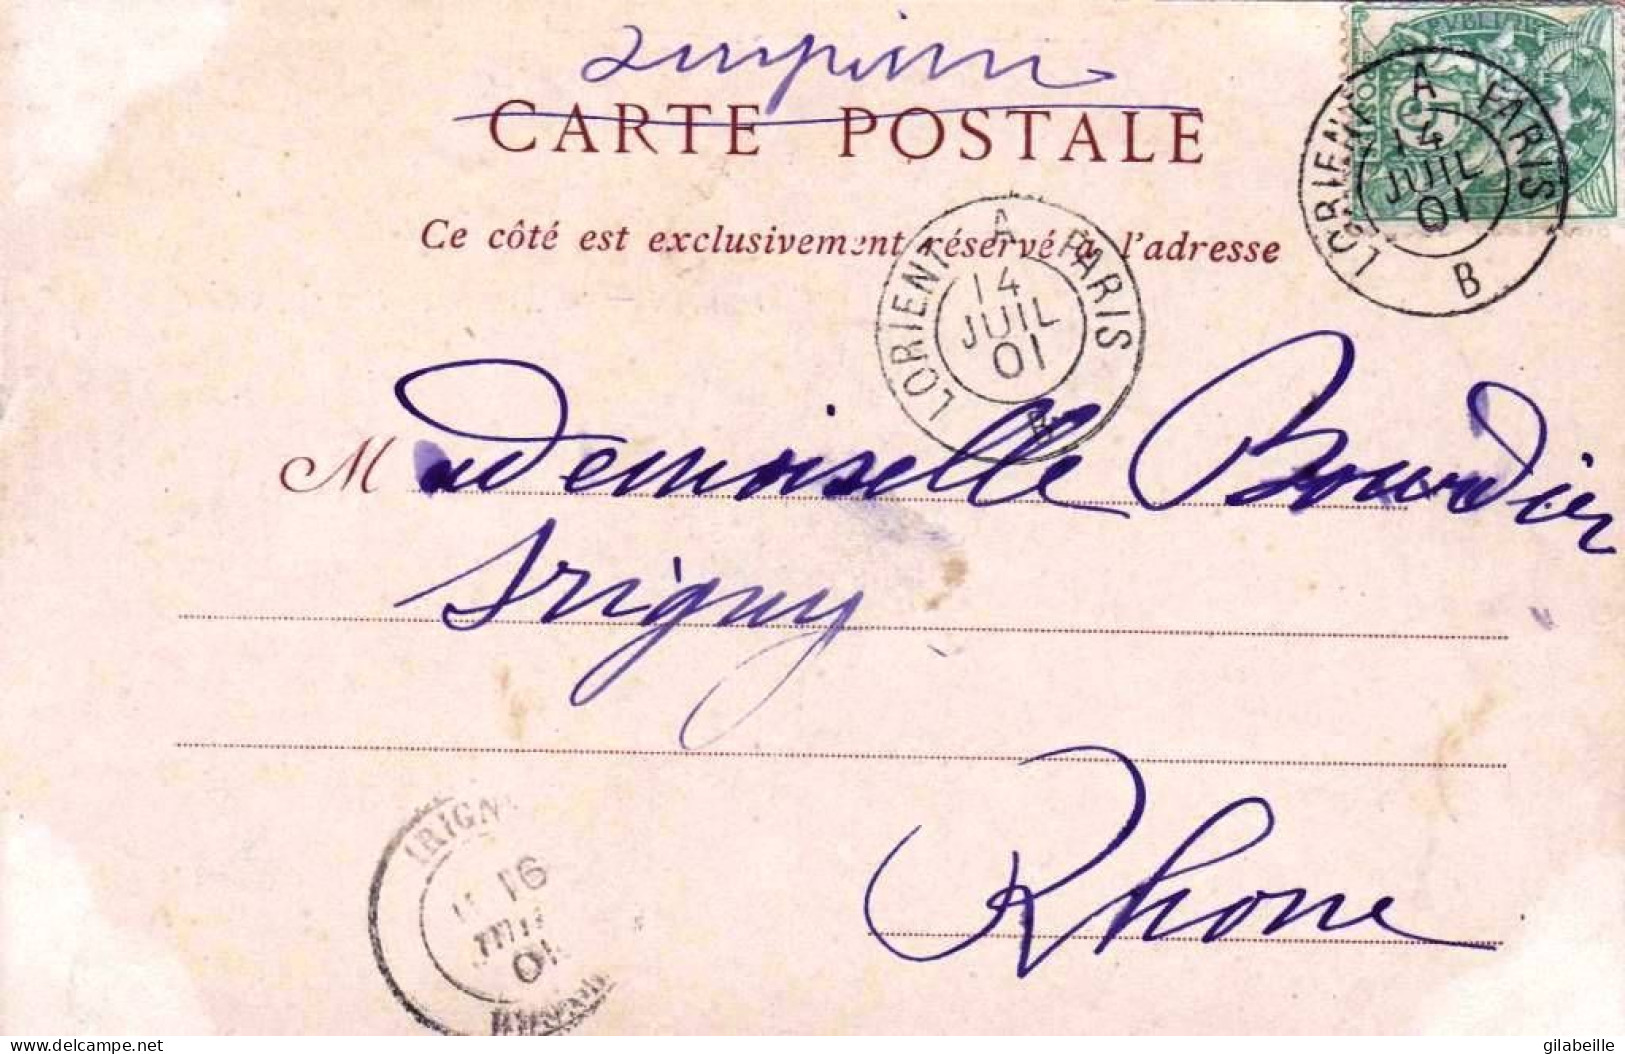 CARTE POSTALE
Ce côté est exclusivement réservé à l'adresse
LORIENT A PARIS
14
JUIL
01
B
LORIENT A PARIS
14
JUIL
01
B
Mademoiselle Bourdier
Irigny
Rhone
IRIGN
16
JUIL
01
delcampe.net
gilabeille